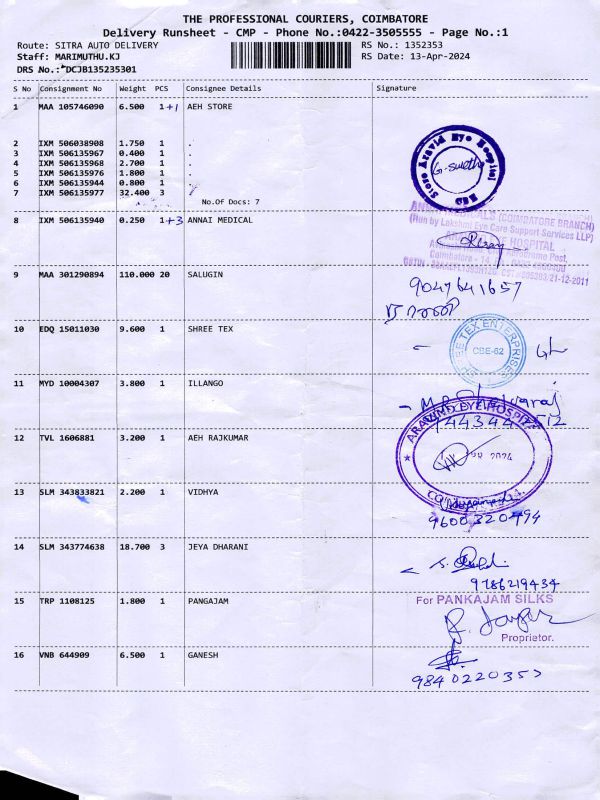 THE PROFESSIONAL COURIERS, COIMBATORE
Delivery Runsheet - CMP - Phone No.:0422-3505555 - Page No.:1
Route: SITRA AUTO DELIVERY
RS No.: 1352353
Staff: MARIMUTHU.KJ
RS Date: 13-Apr-2024
DRS No.: DCJB135235301
S No Consignment No Weight PCS Consignee Details Signature
1 MAA 105746090 6.500 1+1 AEH STORE
2 IXM 506038908 1.750 1 .
3 IXM 506135967 0.400 1 .
4 IXM 506135968 2.700 1 .
5 IXM 506135976 1.800 1 .
6 IXM 506135944 0.800 1 .
7 IXM 506135977 32.400 3
No.Of Docs: 7
Store Aravind Eye Hospital
G. Swetha
8 IXM 506135940 0.250 1+3 ANNAI MEDICAL
(COIMBATORE BRANCH)
(Run by Lakshmi Eye Care Support Services LLP)
HOSPITAL
9 MAA 301290894 110.000 20 SALUGIN
9047641657
10 EDQ 15011030 9.600 1 SHREE TEX
TEX ENTERPRISES
CBE-62
11 MYD 10004307 3.800 1 ILLANGO
12 TVL 1606881 3.200 1 AEH RAJKUMAR
ARAVIND EYE HOSPITAL
2024
13 SLM 343833821 2.200 1 VIDHYA
9600320494
14 SLM 343774638 18.700 3 JEYA DHARANI
9786219434
15 TRP 1108125 1.800 1 PANGAJAM
For PANKAJAM SILKS
Proprietor.
16 VNB 644909 6.500 1 GANESH